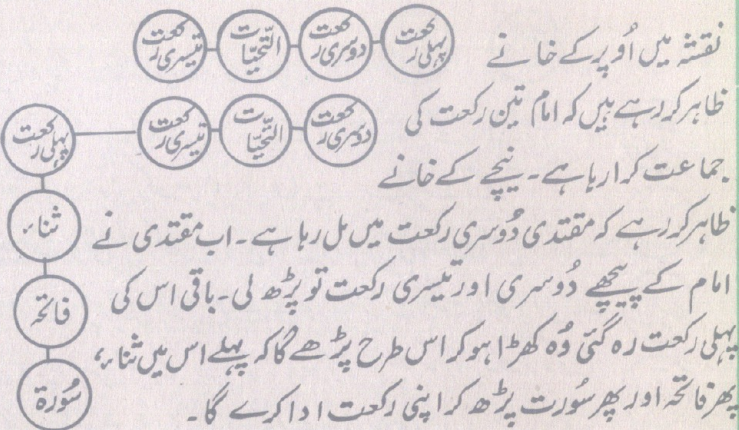 نقشہ میں اُوپر کے خانے
پہلی رکعت
دوسری رکعت
التحیات
تیسری رکعت
ظاہر کر رہے ہیں کہ امام تین رکعت کی
دوسری رکعت
التحیات
تیسری رکعت
پہلی رکعت
جماعت کرا رہا ہے۔ نیچے کے خانے
ظاہر کر رہے کہ مقتدی دُوسری رکعت میں مل رہا ہے۔ اب مقتدی نے
ثناء
امام کے پیچھے دُوسری اور تیسری رکعت تو پڑھ لی۔ باقی اس کی
فاتحہ
پہلی رکعت رہ گئی وُہ کھڑا ہو کر اس طرح پڑھے گا کہ پہلے اس میں ثناء،
پھر فاتحہ اور پھر سُورت پڑھ کر اپنی رکعت ادا کرے گا۔
سُورۃ